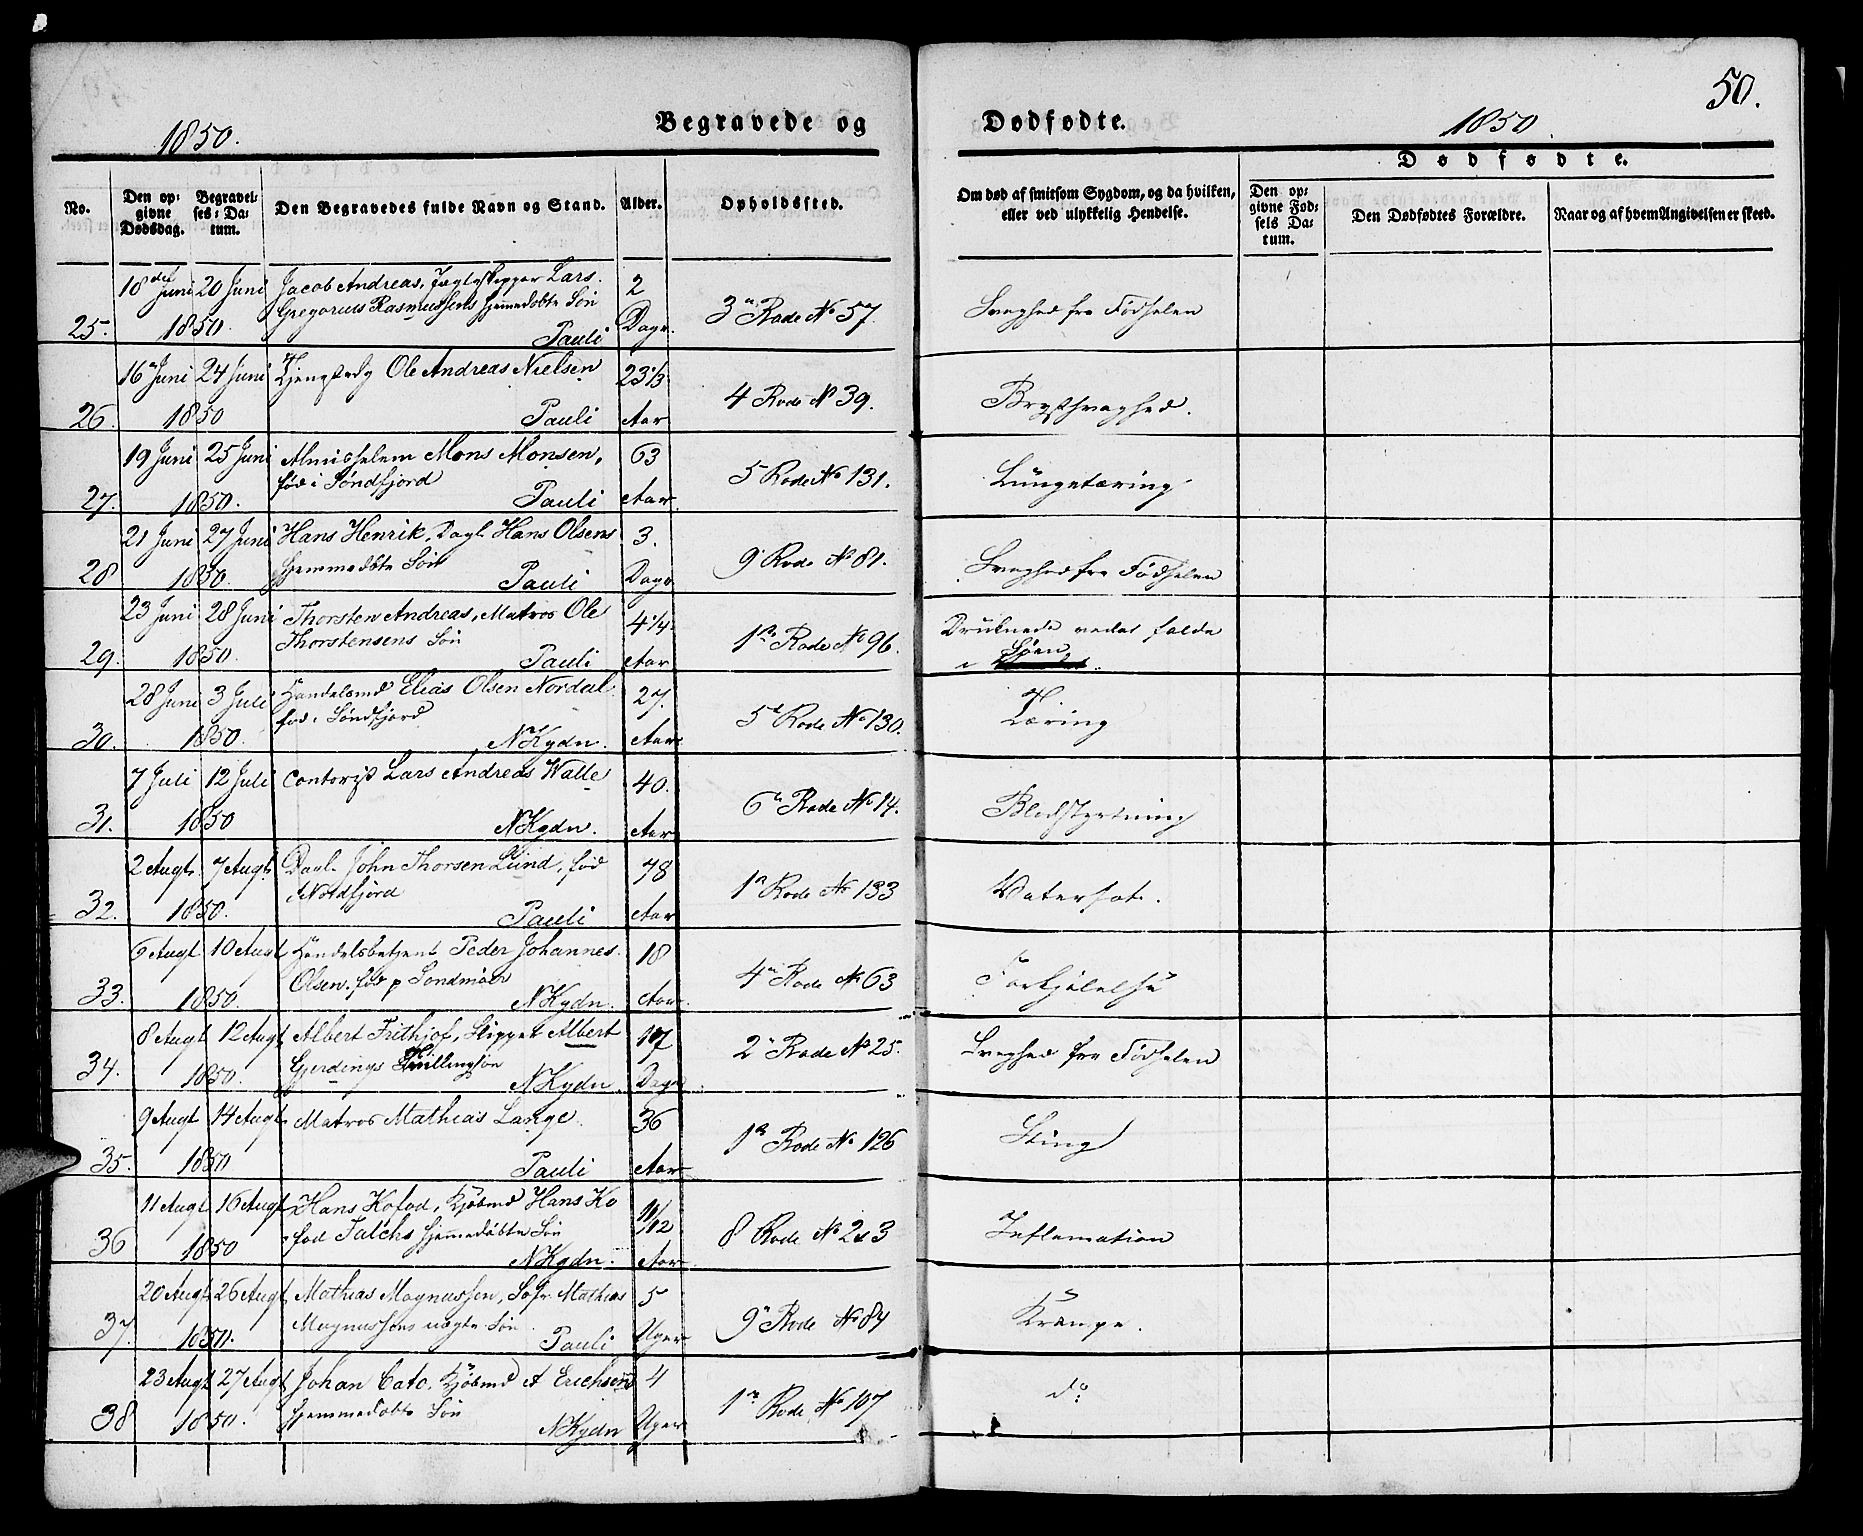 50.
1850. Begravede og Dødfødte. 1850
Dødfødte.
No. | Den opgivne Dødsdag. | Begravelses-Datum. | Den Begravedes fulde Navn og Stand. | Alder. | Opholdssted. | Om død af smitsom Sygdom, og da hvilken, eller ved ulykkelig Hendelse. | Den opgivne Fødsels Datum. | Den Dødfødtes Forældre. | Naar og af hvem Angivelsen er skeed.
18de Juni 20 Juni Jacob Andreas, Jagteskipper Lars 2
Gregorius Rasmussens hjemmedøbte Søn 3 Rode No 57. Svaghed fra Fødselen
25. 1850. Pauli Dage.
16 Juni 24 Juni Ole Andreas Nielsen 23 1/3
4 Rode No 39. Brystsvaghed.
26. 1850 Pauli Aar
19 Juni 25 Juni Almislem Mons Monsen, 63
fød i Søndfjord 5 Rode No 131. Lungetæring
27. 1850. Pauli Aar
21 Juni 27 Juni Hans Henrik, Dagl. Hans Olsens 3.
hjemmedøbte Søn 9 Rode No 81. Svaghed fra Fødselen
28 1850. Pauli Dage
23 Juni 28 Juni Thorsten Andreas, Matros Ole 4 1/4
Thorstensens Søn 1 Rode No 96. Druknede ved at falde
29. 1850. Pauli Aar i Søen
28 Juni 3 Juli Handelsmd Elias Olsen Nordal 27.
fød i Søndfjord 5 Rode No 130. Tæring
30. 1850. NKydn. Aar
7 Juli 12 Juli Contorist Lars Andreas Walle 40.
6 Rode No 14. Blodstyrtning
31. 1850 NKydn. Aar
2 Augt. 7 Augt. Dagl. John Thorsen Lund, fød 78
i Nordfjord 1 Rode No 133 Vatersot.
32. 1850. Pauli Aar
6 Augt 10 Augt Handelsbetjent Peder Johannes 18
Olsen. fød p Søndmør 4 Rode No 63 Forkjølelse
33. 1850. NKydn. Aar.
8 Augt 12 Augt Albert Frithjof, Skipper Albert 17
Gjerdings Tvillingsøn 2 Rode No 25. Svaghed fra Fødselen
34. 1850. NKydn. Dage
9 Augt 14 Augt Matros Mathias Lange. 36
1 Rode No 126 Sting
35. 1850 Pauli Aar
11 Augt 16 Augt Hans Kofod, Kjøbmd Hans Ko 11/12
fod Falchs hjemmedøbte Søn 8 Rode No 213 Inflamation
36 1850 NKydn. Aar
20 Augt 26 Augt Mathias Magnussen, Mathias 5
Magnussens uægte Søn. 9 Rode No 84 Krampe.
37. 1850. Pauli Uger
23 Augt 27 Augt Johan Cato, Kjøbmd A Erichsens 4
hjemmedøbte Søn 1 Rode No 107 do
38 1850. NKydn Uger